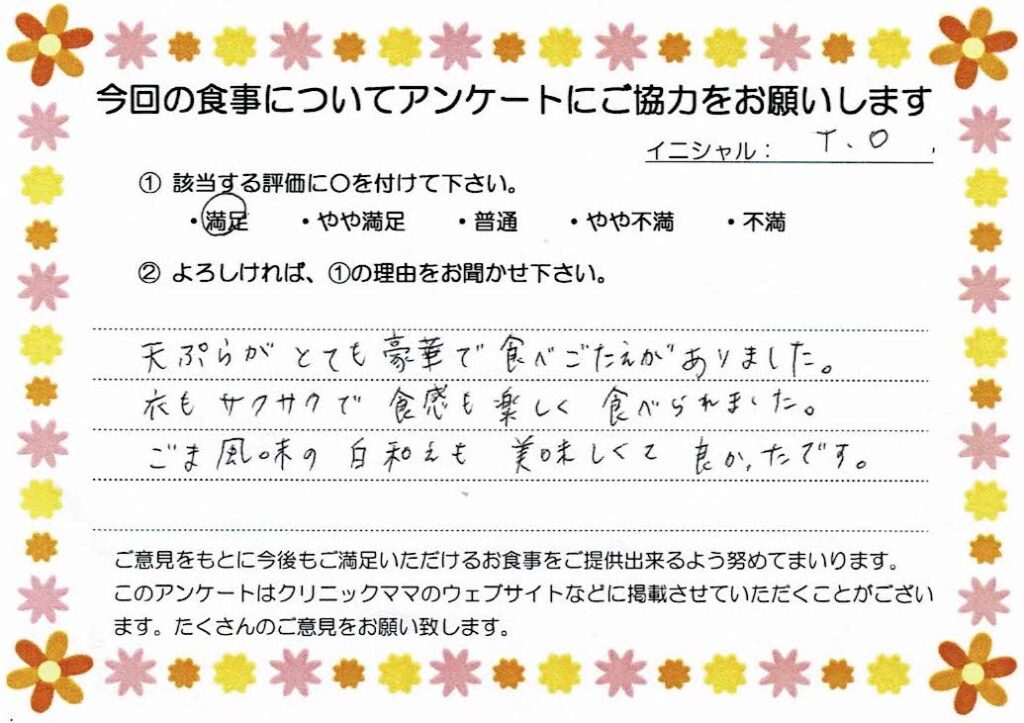 今回の食事についてアンケートにご協力をお願いします
イニシャル： T.O
① 該当する評価に〇を付けて下さい。
・満足 ・やや満足 ・普通 ・やや不満 ・不満
② よろしければ、①の理由をお聞かせ下さい。
天ぷらがとても豪華で食べごたえがありました。
衣もサクサクで食感も楽しく食べられました。
ごま風味の白和えも美味しくて良かったです。
ご意見をもとに今後もご満足いただけるお食事をご提供出来るよう努めてまいります。
このアンケートはクリニックママのウェブサイトなどに掲載させていただくことがござい
ます。たくさんのご意見をお願い致します。